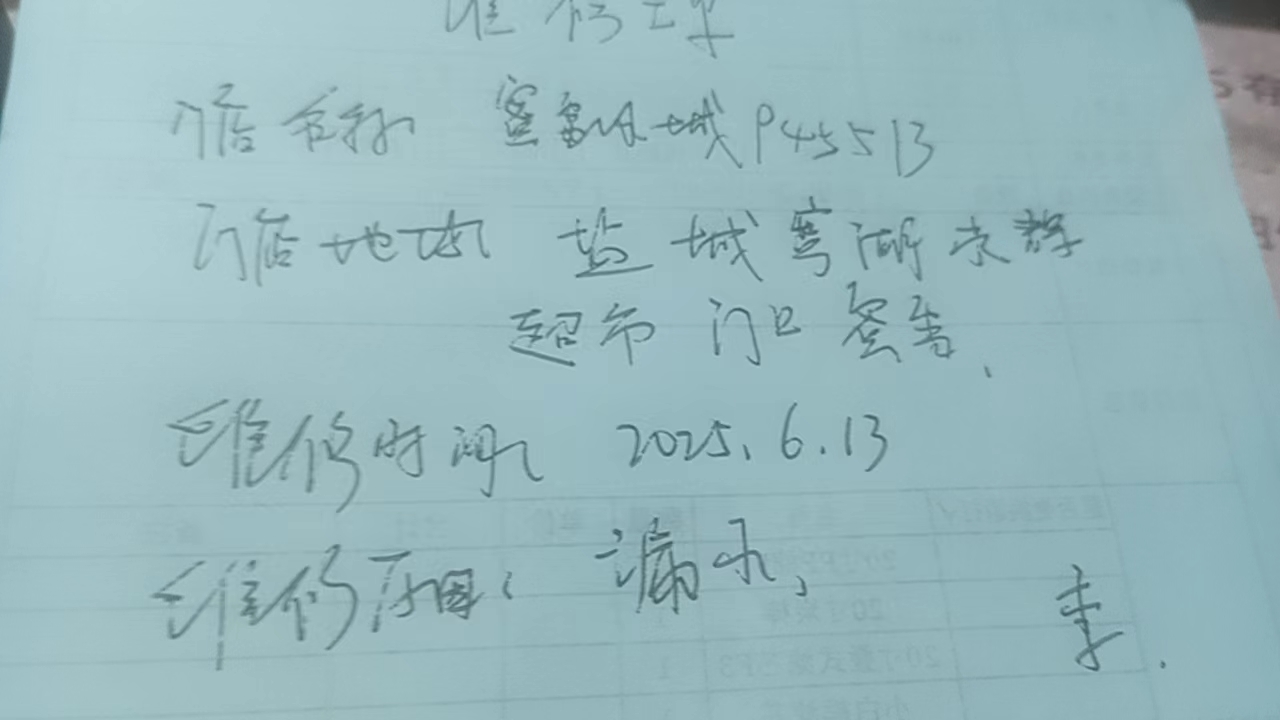 维修单
门店名称 蜜雪冰城P45513
门店地址 盐城鹤湖永辉
超市门口蜜雪、
维修时间 2025.6.13
维修原因: 漏水、
李.